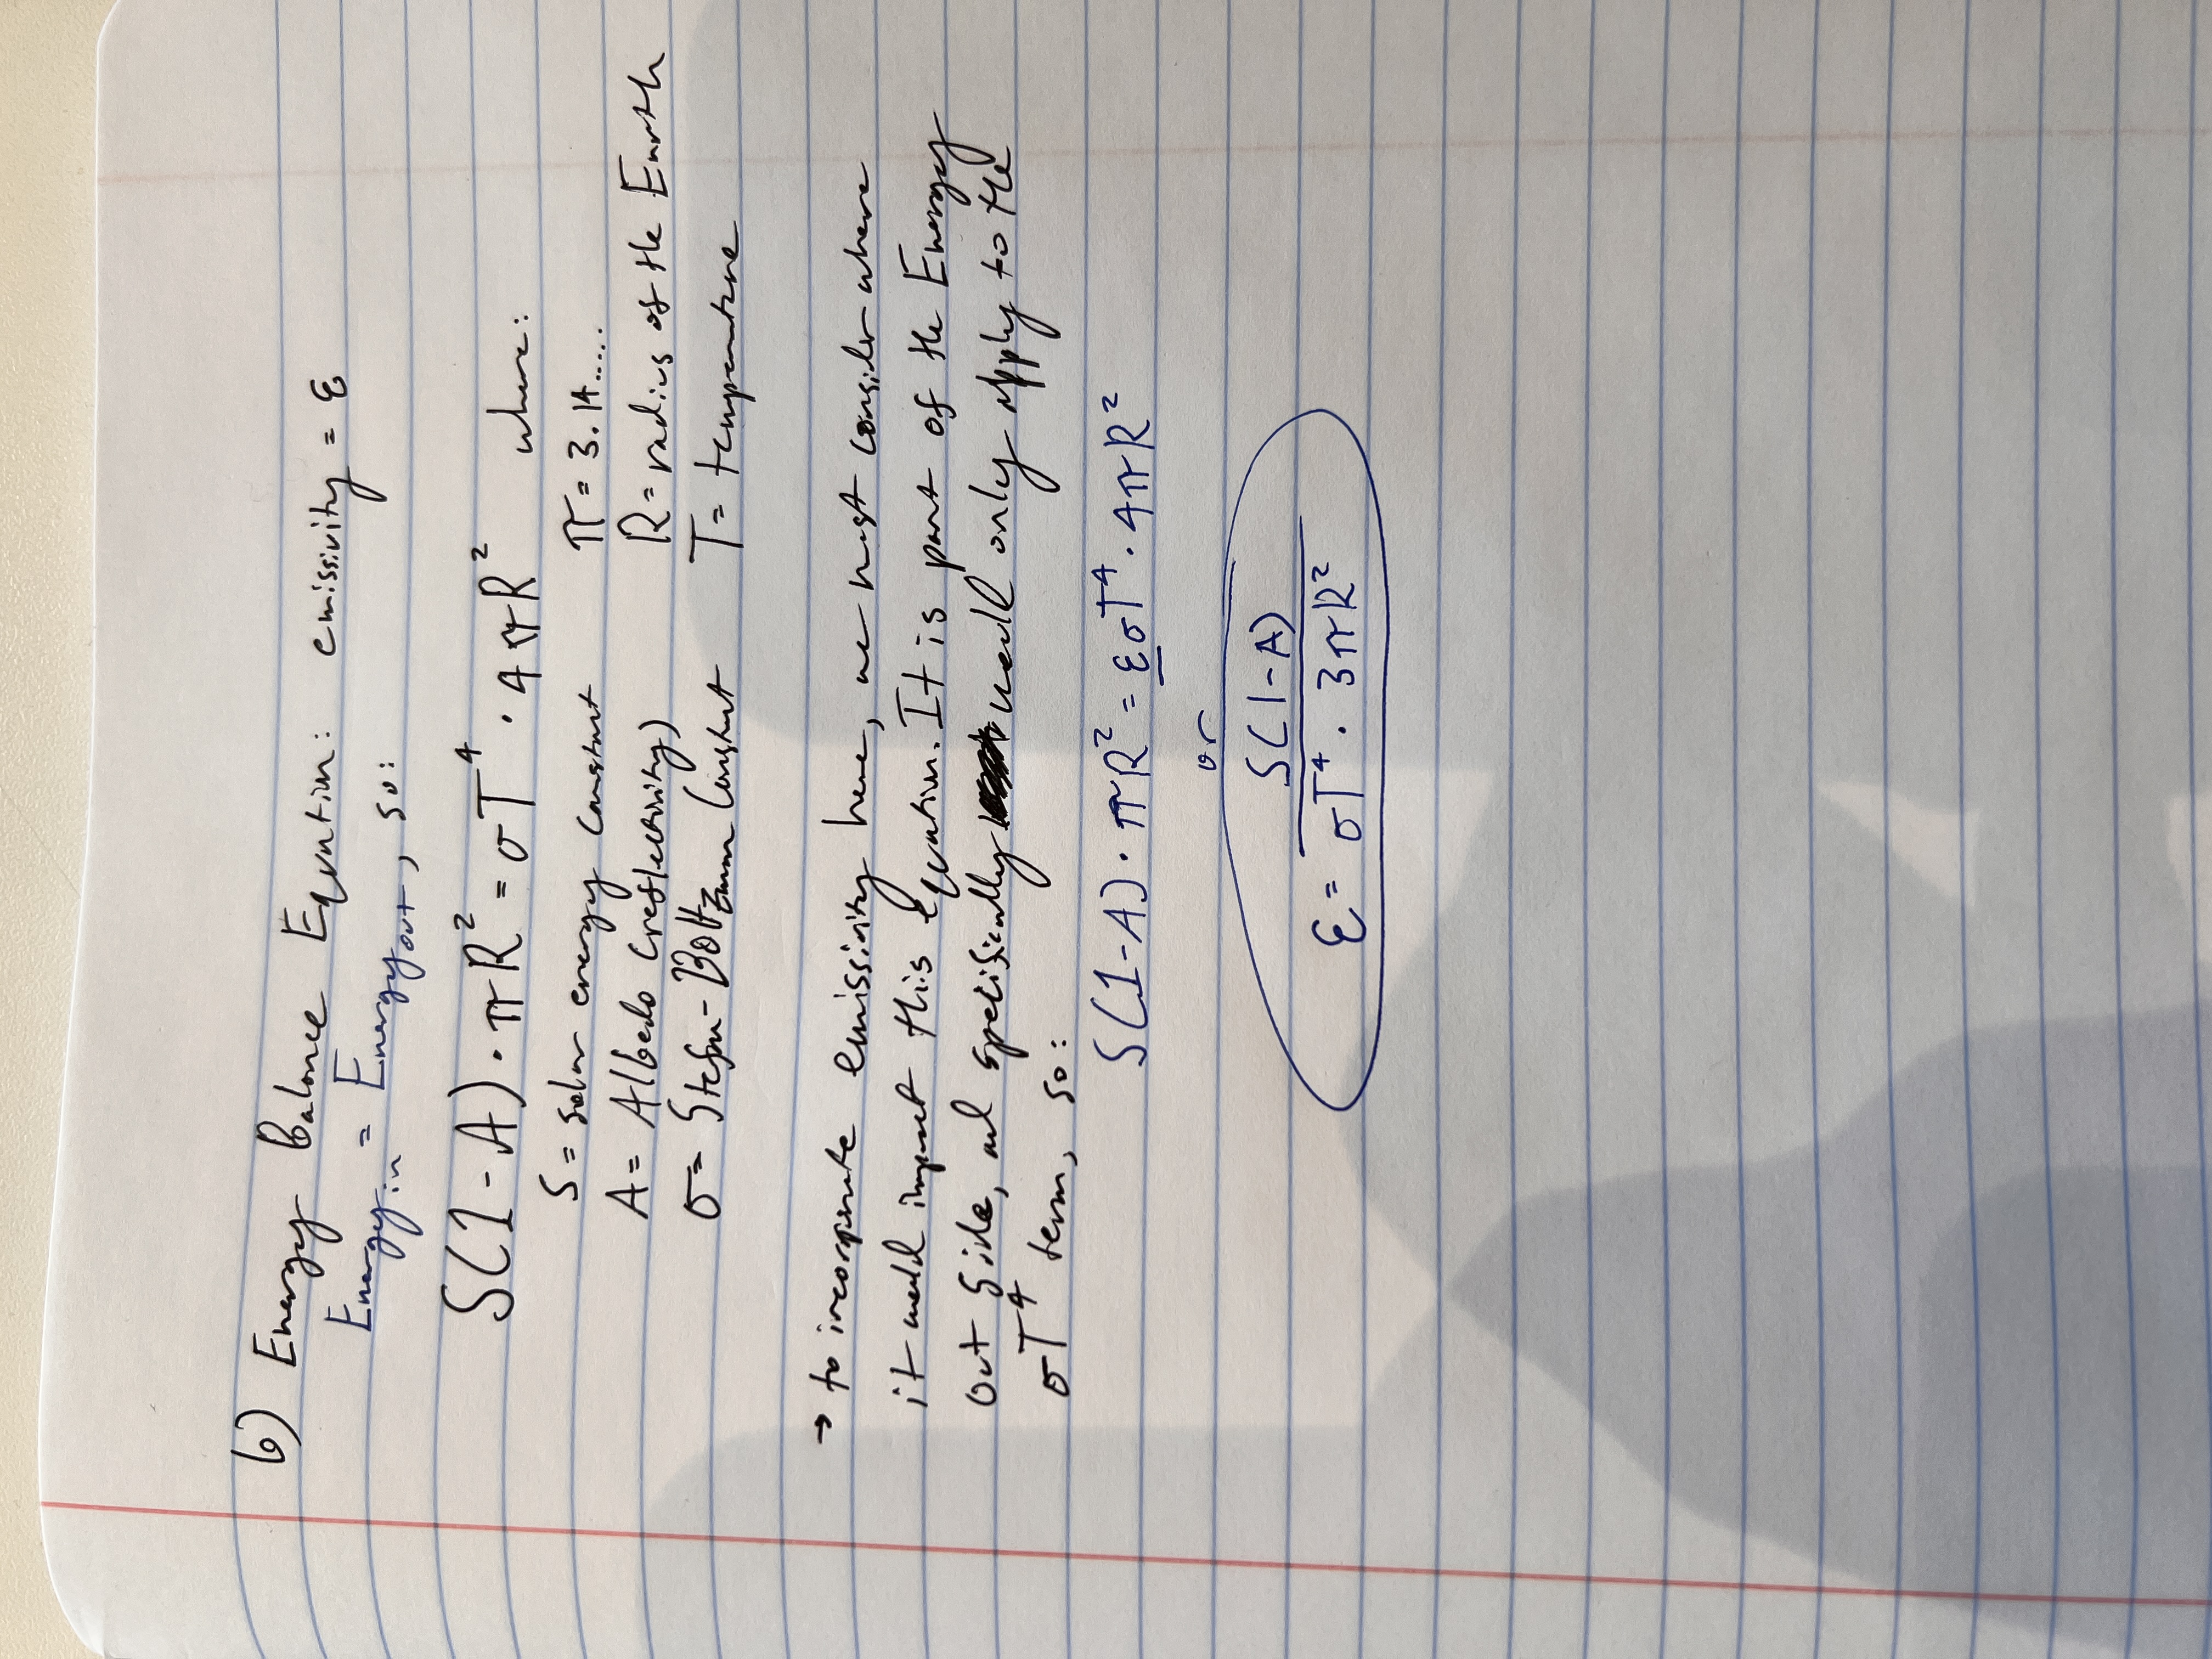 b) Energy Balance Equation: emissivity = ε
Energy in = Energy out, so:
S(1-A) · πR² = σT⁴ · 4πR² where:
S = solar energy constant π = 3.14.....
A = Albedo (reflectivity) R = radius of the Earth
σ = Stefan-Boltzmann Constant T = temperature
→ to incorporate emissivity here, we must consider where
it would impact this equation. It is part of the Energy
out side, and specifically would only apply to the
σT⁴ term, so:
S(1-A) · πR² = εσT⁴ · 4πR²
or
ε = S(1-A) / σT⁴ · 3πR²